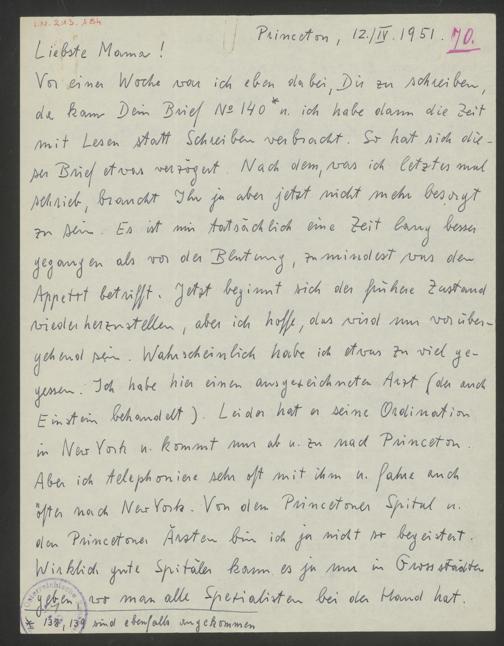 I.N. 213.184
Princeton, 12./IV. 1951. 70.
Liebste Mama!
Vor einer Woche war ich eben dabei, Dir zu schreiben,
da kam Dein Brief No 140* u. ich habe dann die Zeit
mit Lesen statt Schreiben verbracht. So hat sich die-
ser Brief etwas verzögert. Nach dem, was ich letztes mal
schrieb, braucht Ihr ja aber jetzt nicht mehr besorgt
zu sein. Es ist mir tatsächlich eine Zeit lang besser
gegangen als vor der Blutung, zumindest was den
Appetit betrifft. Jetzt beginnt sich der frühere Zustand
wiederherzustellen, aber ich hoffe, das wird nur vorüber-
gehend sein. Wahrscheinlich habe ich etwas zu viel ge-
gessen. Ich habe hier einen ausgezeichneten Arzt (der auch
Einstein behandelt). Leider hat er seine Ordination
in New York u. kommt nur ab u. zu nach Princeton.
Aber ich telephoniere sehr oft mit ihm u. fahre auch
öfter nach New York. Von dem Princetoner Spital u.
den Princetoner Ärzten bin ich ja nicht so begeistert.
Wirklich gute Spitäler kann es ja nur in Grossstädten
geben wo man alle Spezialisten bei der Hand hat.
* 138, 139 sind ebenfalls angekommen